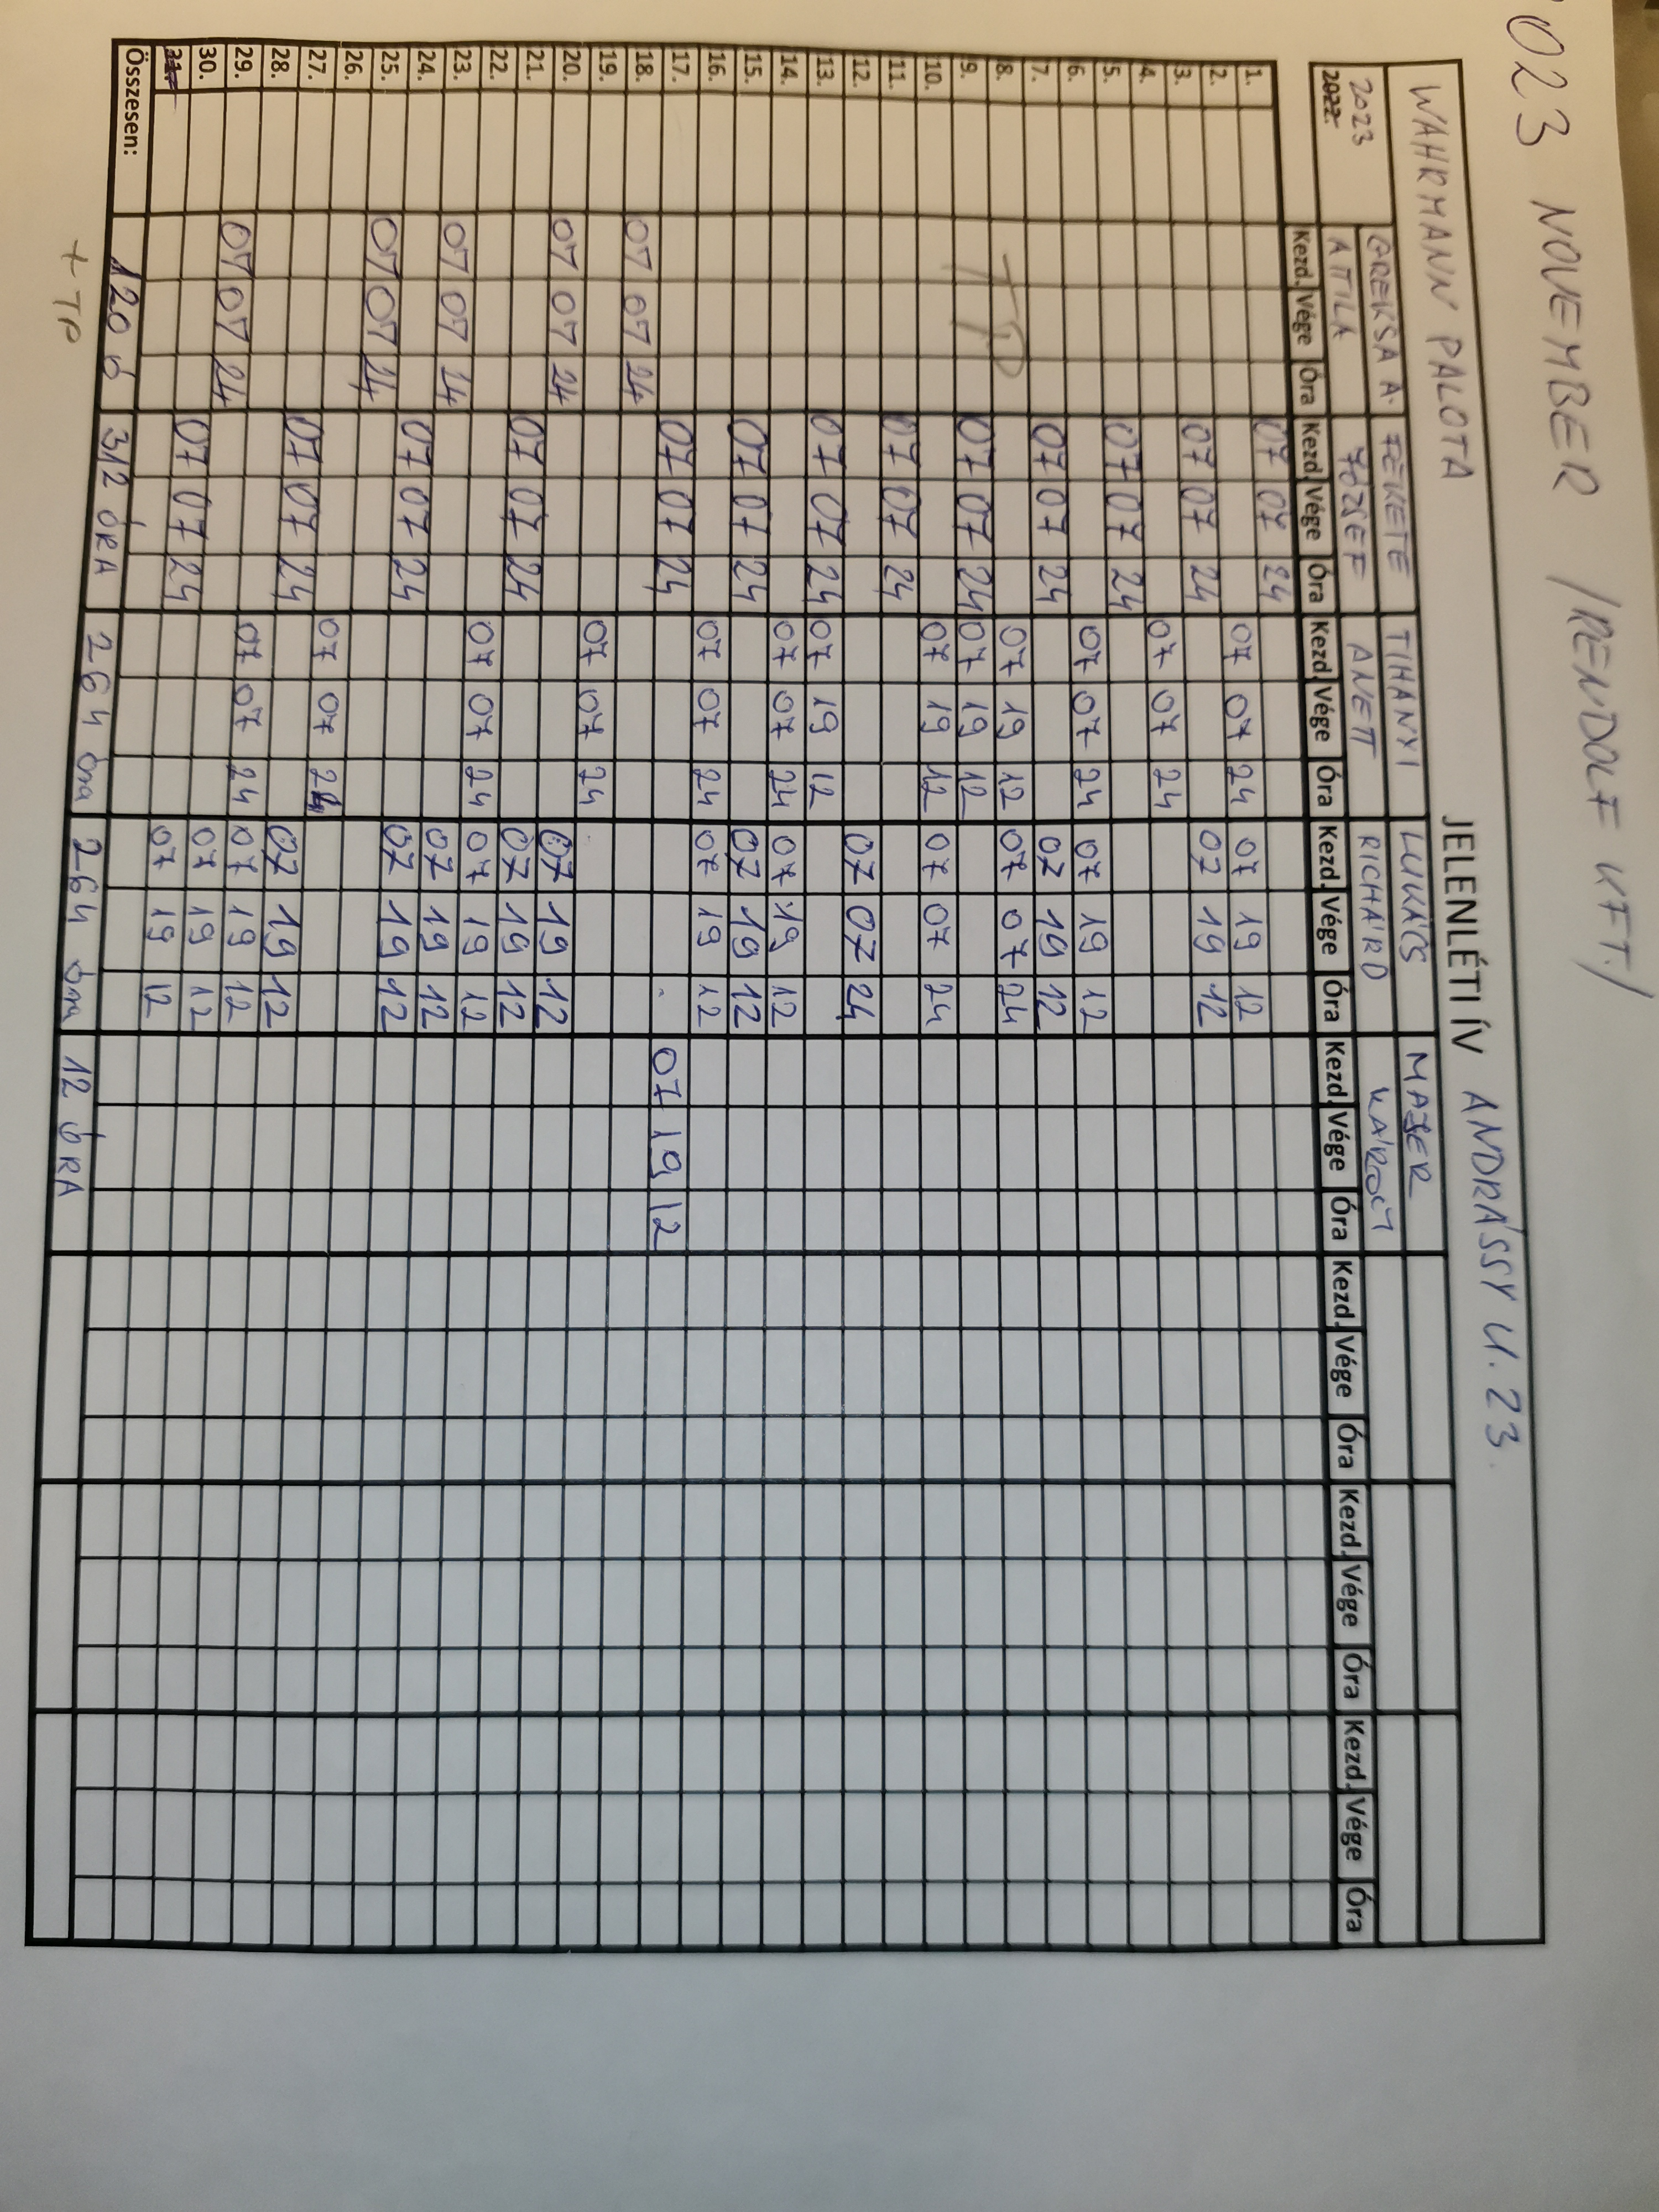 2023 NOVEMBER /RENDOLF KFT./
JELENLÉTI ÍV ANDRÁSSY U. 23.
WAHRMANN PALOTA
2023 GREKSA A. FEKETE TIHANYI LUKÁCS MAJER
2022. ATTILA JÓZSEF ANETT RICHÁRD KÁROLY
Kezd. Vége Óra Kezd. Vége Óra Kezd. Vége Óra Kezd. Vége Óra Kezd. Vége Óra Kezd. Vége Óra Kezd. Vége Óra Kezd. Vége Óra
1. 07 07 24
2. 07 07 24 07 19 12
3. 07 07 24 07 19 12
4. 07 07 24
5. 07 07 24
6. 07 07 24 07 19 12
7. 07 07 24 07 19 12
8. TP 07 19 12 07 07 24
9. 07 07 24 07 19 12
10. 07 19 12 07 07 24
11. 07 07 24
12. 07 07 24
13. 07 07 24 07 19 12
14. 07 07 24 07 19 12
15. 07 07 24 07 19 12
16. 07 07 24 07 19 12
17. 07 07 24 07 19 12
18. 07 07 24
19. 07 07 24
20. 07 07 24 07 19 12
21. 07 07 24 07 19 12
22. 07 07 24 07 19 12
23. 07 07 24 07 19 12
24. 07 07 24 07 19 12
25. 07 07 24
26. 07 07 24
27. 07 07 24 07 19 12
28. 07 07 24 07 19 12
29. 07 07 24 07 19 12
30. 07 07 24 07 19 12
31.
Összesen: 120 ó 312 ÓRA 264 óra 264 óra 12 ÓRA
+ TP